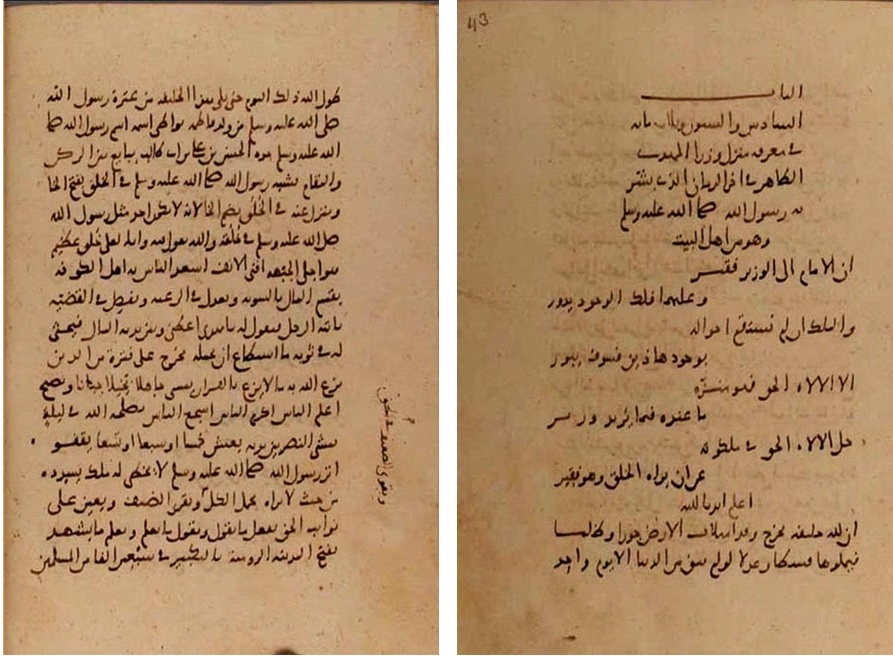 43
الباب
السادس والستون وثلاث مائة
في معرفة منزل وزرا المهدي
الظاهر في اخر الزمان الذي بشر
به رسول الله صلى الله عليه وسلم
وهو من اهل البيت
ان الامام الى الوزير فقير
وعليهما فلك الوجود يدور
والملك ان لم تستقم احواله
بوجود هاذين فسوف يبور
الا الالاه الحق فهو منزه
ما عنده فيما يريد وزير
جل الالاه الحق في ملكوته
عن ان يراه الخلق وهو فقير
اعلم ايدنا الله
ان لله خليفة يخرج وقد امتلات الارض جورا وظلما
فيملوها قسطا وعدلا لو لم يبق من الدنيا الا يوم واحد
طول الله ذلك اليوم حتى يلي هذا الخليفة من عترة رسول الله
صلى الله عليه وسلم من ولد فاطمة يواطي اسمه اسم رسول الله صلى
الله عليه وسلم جده الحسن بن علي بن ابي طالب يبايع بين الركن
والمقام يشبه رسول الله صلى الله عليه وسلم في الخلق بفتح الخا
وينزل عنه في الخلق بضم الخا لانه لا يكون احد مثل رسول الله
صلى الله عليه وسلم في خلقه والله يقول فيه وانك لعلى خلق عظيم
هو اجلى الجبهة اقنى الانف اسعد الناس به اهل الكوفة
يقسم المال بالسوية ويعدل في الرعية ويفصل في القضية
ياتيه الرجل فيقول له يا مهدي اعطني وبين يديه المال فيحثي
له في ثوبه ما استطاع ان يحمله يخرج على فترة من الدين
يزع الله به ما لا يزع بالقران يمسي جاهلا بخيلا جبانا ويصبح
اعلم الناس اكرم الناس اشجع الناس يصلحه الله في ليلة
يمشي النصر بين يديه يعيش خمسا او سبعا او تسعا يقفو
اثر رسول الله صلى الله عليه وسلم لا يخطي له ملك يسدده
من حيث لا يراه يحمل الكل ويقري الضيف ويعين على
نوايب الحق يفعل ما يقول ويقول ما يعلم ويعلم ما يشهد
يفتح المدينة الرومية بالتكبير في سبعين الفا من المسلمين
ويقوي الضعيف في الحق